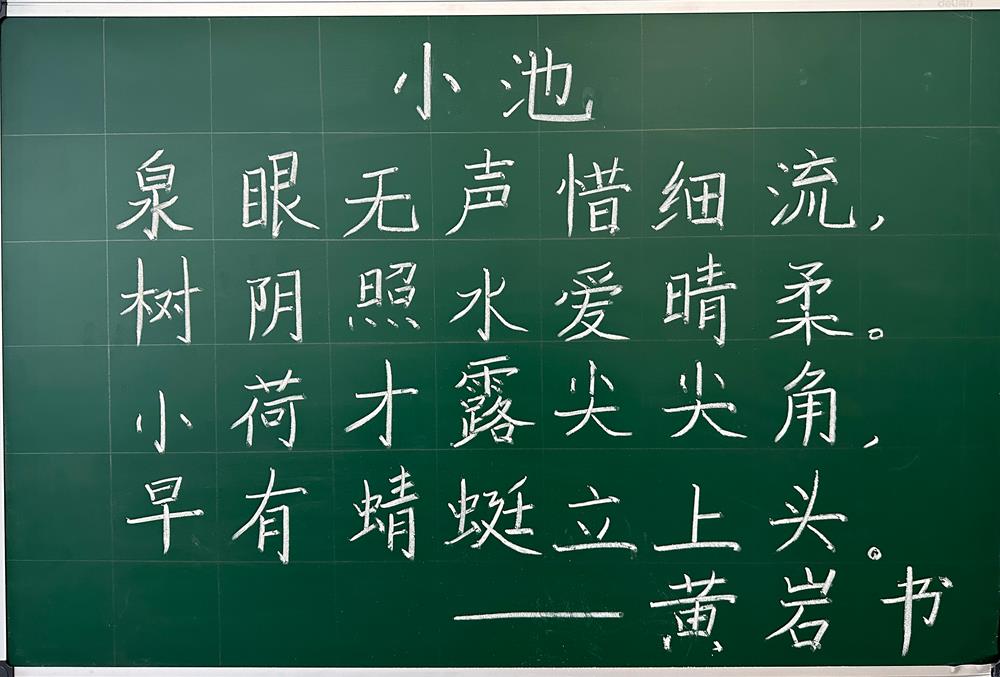 小池
泉眼无声惜细流,
树阴照水爱晴柔。
小荷才露尖尖角,
早有蜻蜓立上头。
——黄岩书